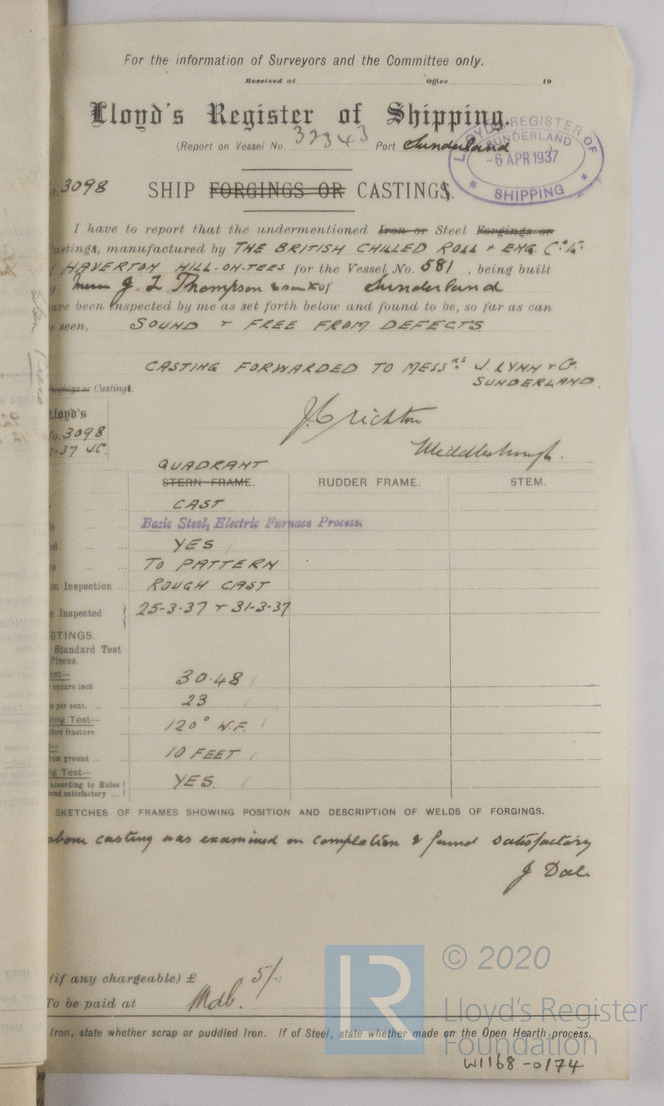 For the information of Surveyors and the Committee only.
Received at Office 19
Lloyd's Register of Shipping.
(Report on Vessel No. 32343 Port Sunderland
LLOYD'S REGISTER OF SHIPPING
SUNDERLAND
-6 APR 1937
3098 SHIP FORGINGS OR CASTINGS.
I have to report that the undermentioned Iron or Steel Forgings or
astings, manufactured by THE BRITISH CHILLED ROLL & ENG. Co. Ld.
HAVERTON HILL-ON-TEES for the Vessel No. 581, being built
Messrs J. L. Thompson & Sons Ld of Sunderland
ave been inspected by me as set forth below and found to be, so far as can
e seen, SOUND & FREE FROM DEFECTS
CASTING FORWARDED TO MESSRS J. LYNN & Co.
SUNDERLAND.
Forgings or Castings.
Lloyd's
No. 3098
J.C.
J Crichton
Middlesbrough.
QUADRANT
STERN FRAME. RUDDER FRAME. STEM.
CAST
Basic Steel, Electric Furnace Process.
YES
TO PATTERN
n Inspection ... ROUGH CAST
n Inspected 25-3-37 & 31-3-37
STINGS.
Standard Test
Pieces.
est—
square inch 30.48
e per cent. ... 23
ing Test—
fore fracture 120° W.F.
rom ground ... 10 FEET
g Test—
According to Rules
and satisfactory ... YES.
SKETCHES OF FRAMES SHOWING POSITION AND DESCRIPTION OF WELDS OF FORGINGS.
above casting was examined on completion & found satisfactory
J Dale
(if any chargeable) £ 5/-
To be paid at Mdb.
Iron, state whether scrap or puddled Iron. If of Steel, state whether made on the Open Hearth process,
© 2020
LR
Lloyd's Register
Foundation
W1168-0174